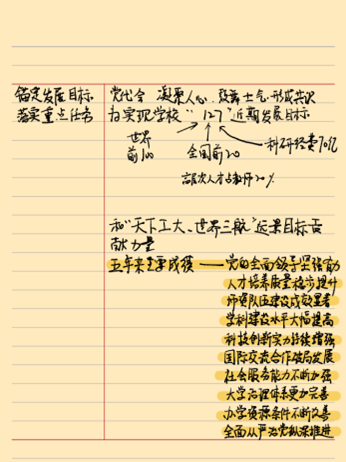 锚定发展目标
落实重点任务
党代会 凝聚人心、鼓舞士气、形成共识
为实现学校"127"近期发展目标
世界
前100
全国前20
科研经费70亿
高层次人才占教师20%
和"天下工大、世界三航"远景目标贡
献力量
五年来主要成绩——党的全面领导坚强有力
人才培养质量稳步提升
师资队伍建设成效显著
学科建设水平大幅提高
科技创新实力持续增强
国际交流合作破局发展
社会服务能力不断加强
大学治理体系更加完善
办学资源条件不断改善
全面从严治党纵深推进